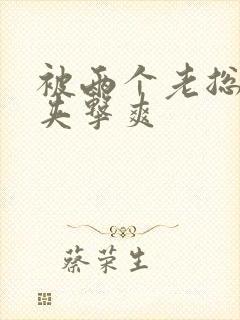 被两个老总
夹擊爽
蔡荣生